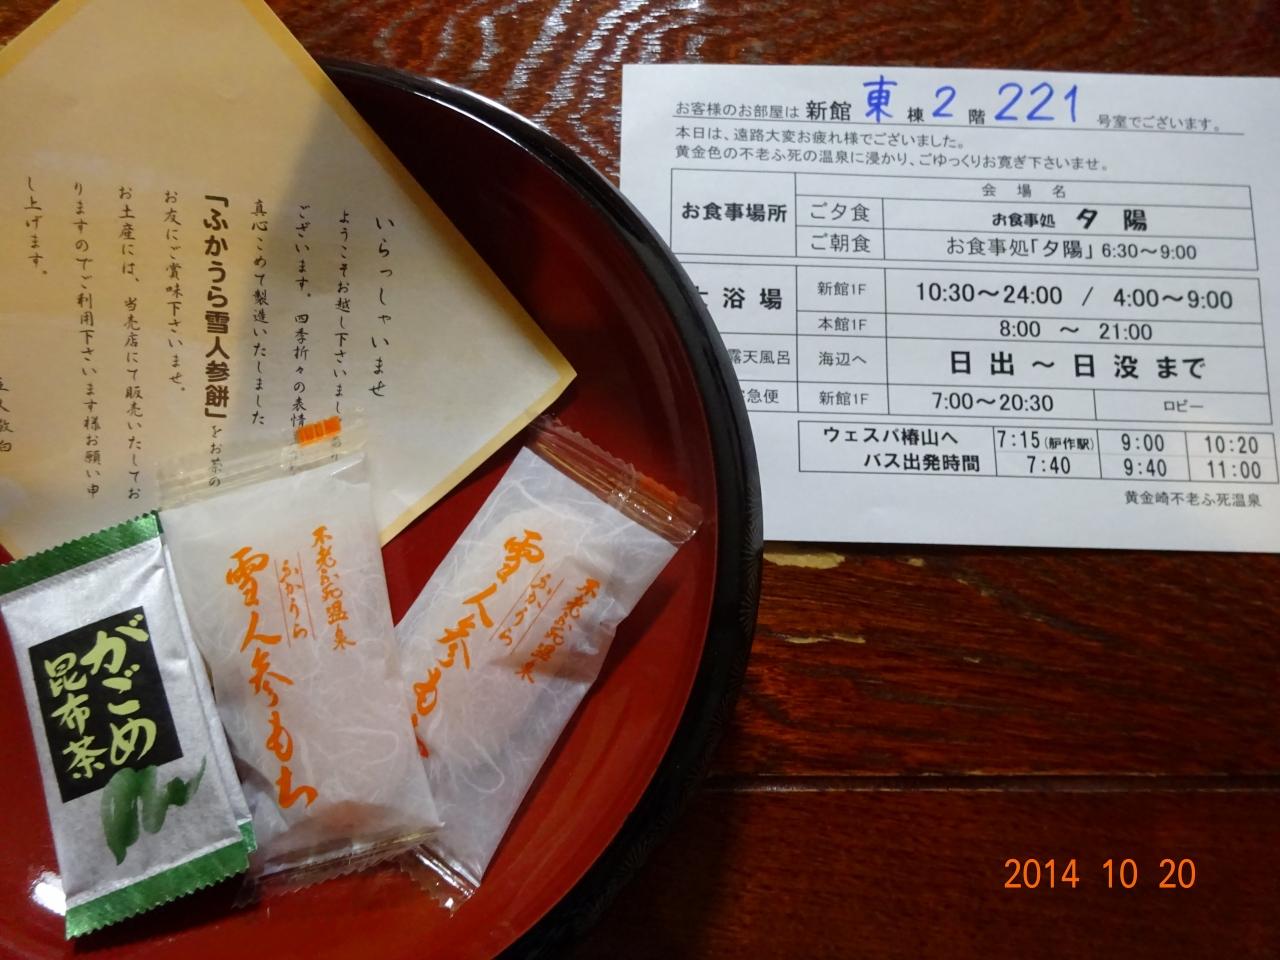 いらっしゃいませ
ようこそお越し下さいまし
ございます。四季折々の表情
真心こめて製造いたしました
「ふかうら雪人参餅」をお茶の
お友にご賞味下さいませ。
お土産には、当売店にて販売いたしてお
りますのでご利用下さいます様お願い申
し上げます。
敬白
お客様のお部屋は 新館 東 棟 2 階 221 号室でございます。
本日は、遠路大変お疲れ様でございました。
黄金色の不老ふ死の温泉に浸かり、ごゆっくりお寛ぎ下さいませ。
会 場 名
お食事場所 ご夕食 お食事処 夕 陽
ご朝食 お食事処「夕陽」 6:30～9:00
浴 場 新館1F 10:30～24:00 / 4:00～9:00
本館1F 8:00 ～ 21:00
露天風呂 海辺へ 日 出 ～ 日 没 まで
急便 新館1F 7:00～20:30 ロビー
ウェスパ椿山へ 7:15(艫作駅) 9:00 10:20
バス出発時間 7:40 9:40 11:00
黄金崎不老ふ死温泉
がごめ
昆布茶
不老ふ死温泉
ふかうら
雪人参もち
不老ふ死温泉
ふかうら
雪人参も
2014 10 20